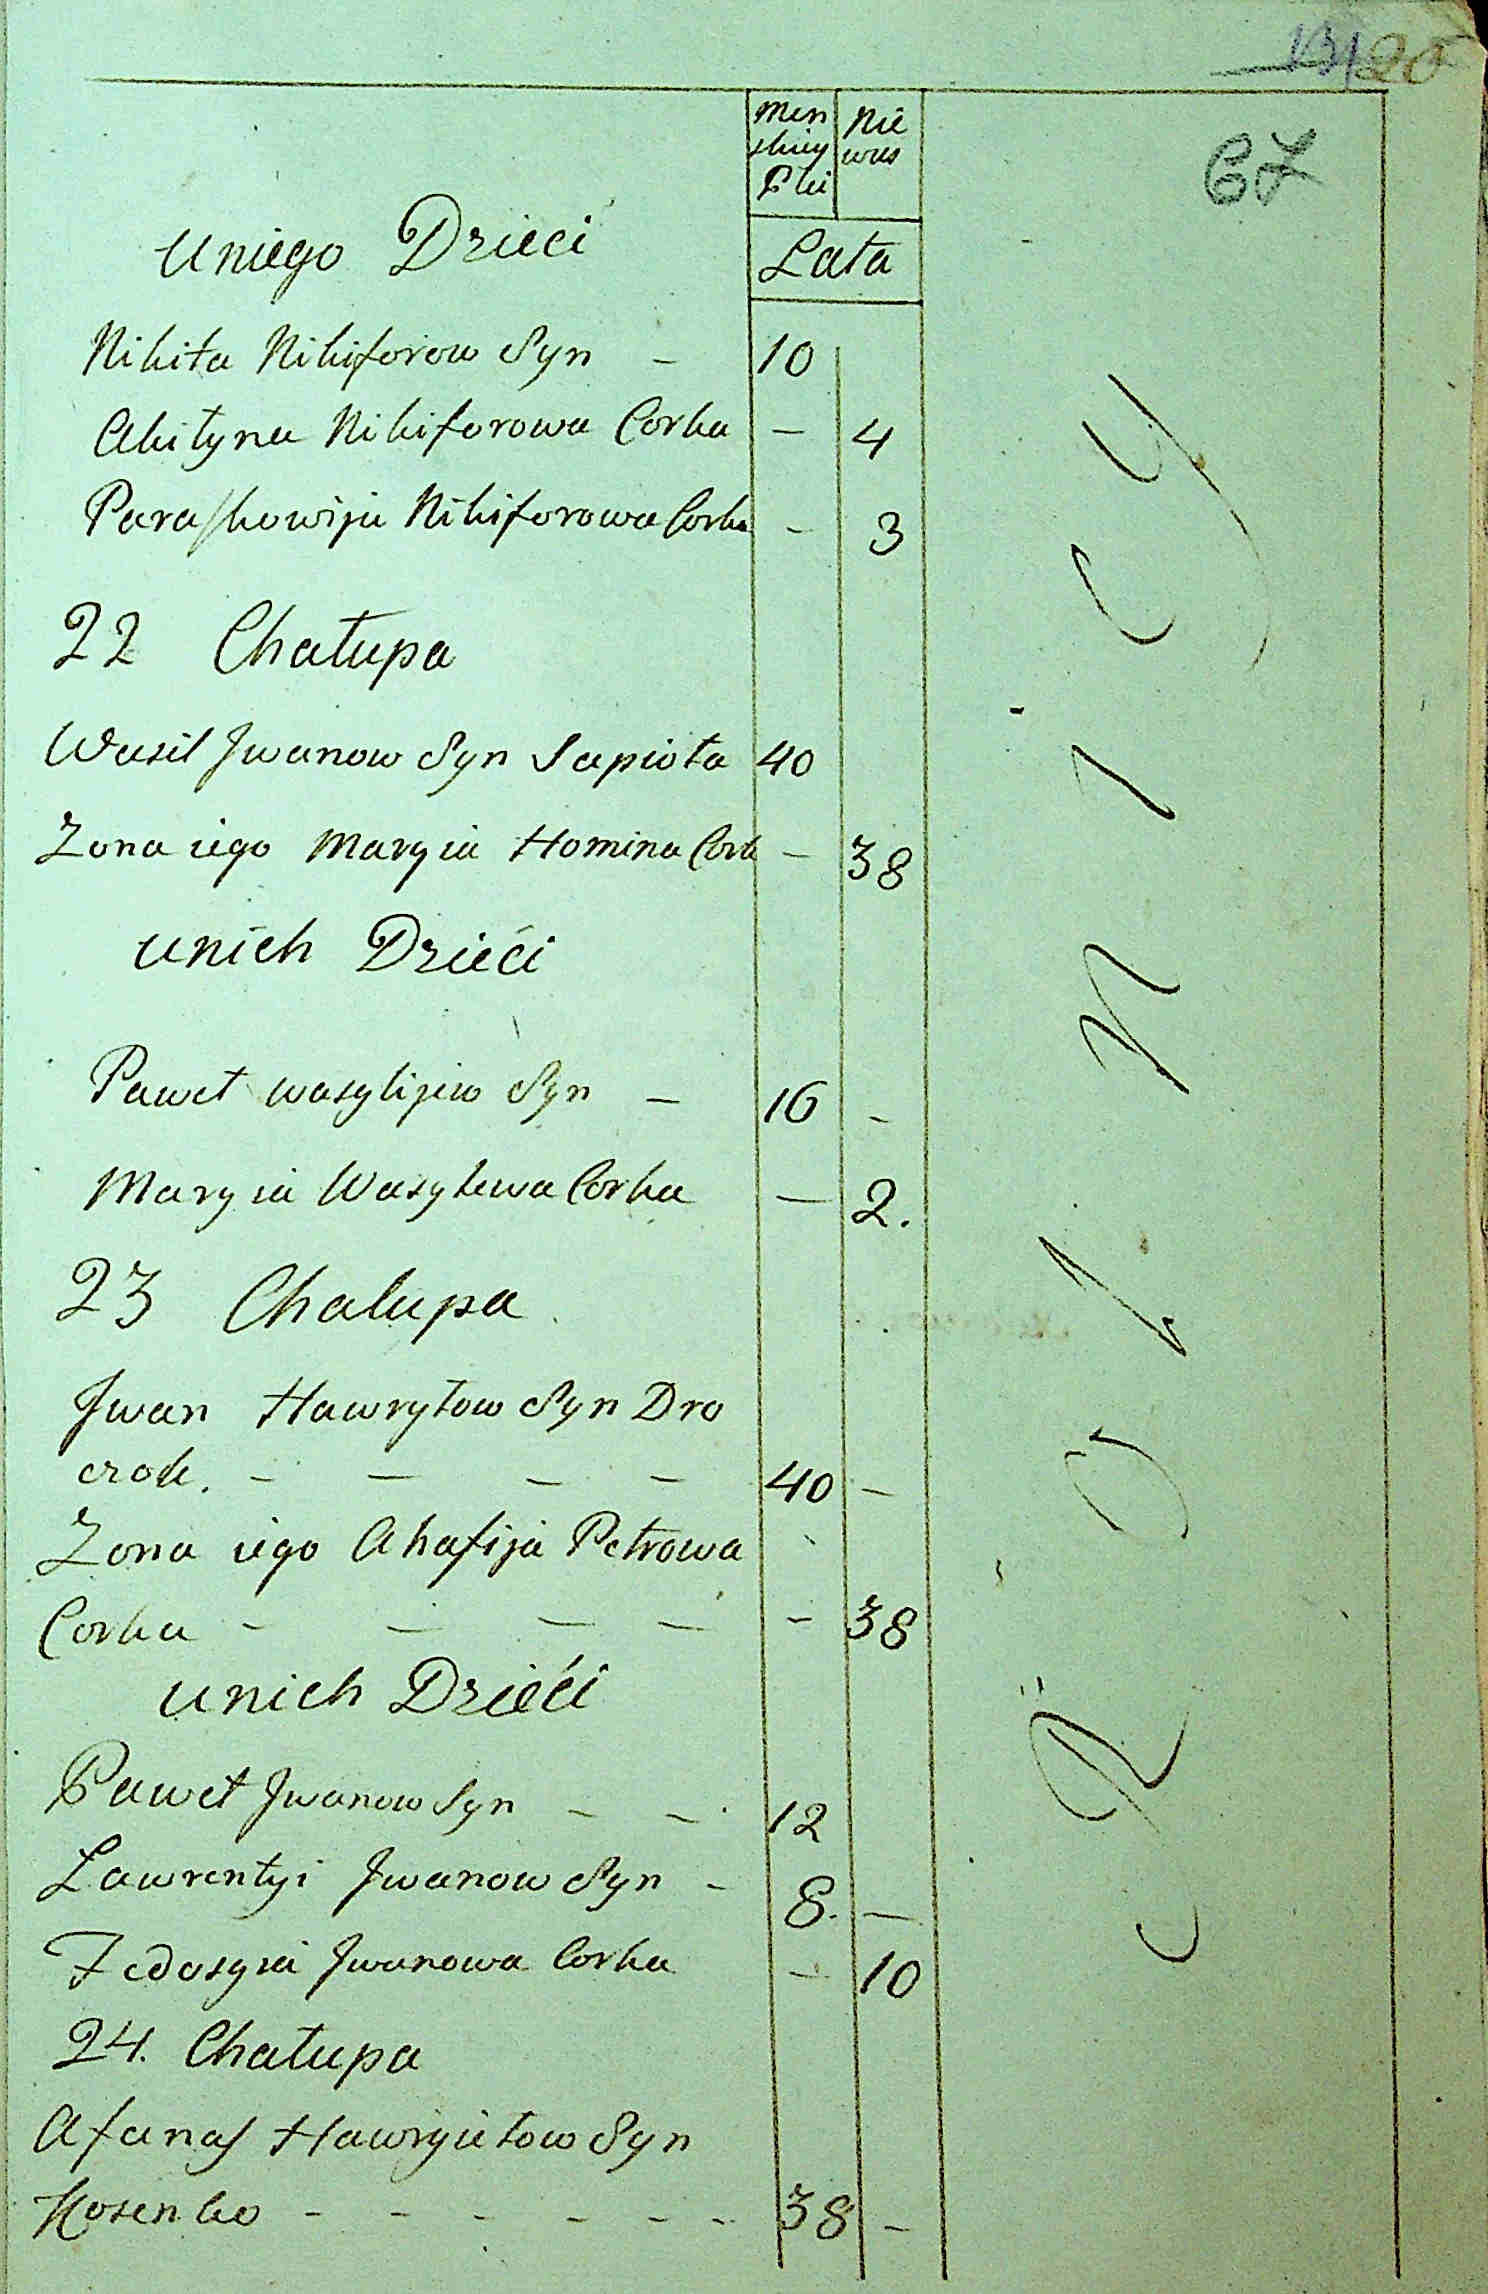 20
67
Men Nie
skiey wias
Płci
Lata
Uniego Dzieci
Nikita Nikiforow Syn - 10
Akityna Nikiforowa Corka - 4
Paraskowija Nikiforowa Corka - 3
22 Chałupa
Wasil Jwanow Syn Sapiota 40
Zona iego Maryia Homina Cork - 38
unich Dzieci
Paweł wasylijew Syn - 16 -
Maryia Wasylewa Corka - 2.
23 Chalupa
Jwan Hawryłow Syn Dro
czak. - - - - 40 -
Zona iego Ahafija Petrowa
Corka - - - - - 38
unich Dzieci
Paweł Jwanow Syn - - 12
Lawrentyi Jwanow Syn - 8. -
Fedosyia Jwanowa Corka - 10
24. Chałupa
Afanas Hawryiłow Syn
Kosenko - - - - - - 38 -
cRólnicy